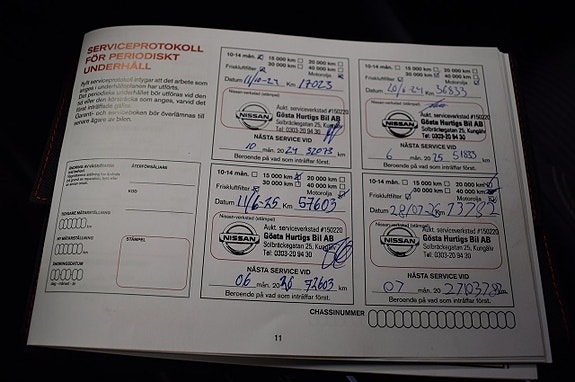 SERVICEPROTOKOLL
FÖR PERIODISKT
UNDERHÅLL
Ifyllt serviceprotokoll intygar att det arbete som
anges i underhållsplanen har utförts.
Det periodiska underhållet bör utföras vid den
tid eller den körsträcka som anges, varvid det
först inträffade gäller.
Garanti- och serviceboken bör överlämnas till
senare ägare av bilen.
ÅTERFÖRSÄLJARE
KOD
STÄMPEL
NY MÄTARSTÄLLNING
10-14 mån. 15 000 km 20 000 km
30 000 km 40 000 km
Friskluftfilter Motorolja
Datum 11/10-24 Km 17023
Nissan-verkstad (stämpel)
NISSAN
Aukt. serviceverkstad #150220
Gösta Hurtigs Bil AB
Solbräckegatan 25, Kungälv
Tel: 0303-20 94 30
NÄSTA SERVICE VID
10 mån. 20 24 32073 km
Beroende på vad som inträffar först.
10-14 mån. 15 000 km 20 000 km
30 000 km 40 000 km
Friskluftfilter Motorolja
Datum 20/6-24 Km 36833
NISSAN
Aukt. serviceverkstad #150220
Gösta Hurtigs Bil AB
Solbräckegatan 25, Kungälv
Tel: 0303-20 94 30
NÄSTA SERVICE VID
6 mån. 20 25 51833 km
Beroende på vad som inträffar först.
10-14 mån. 15 000 km 20 000 km
30 000 km 40 000 km
Friskluftfilter Motorolja
Datum 11/6-25 Km 57603
Nissan-verkstad (stämpel)
NISSAN
Aukt. serviceverkstad #150220
Gösta Hurtigs Bil AB
Solbräckegatan 25, Kungälv
Tel: 0303-20 94 30
NÄSTA SERVICE VID
06 mån. 20 26 72603 Km
Beroende på vad som inträffar först.
10-14 mån. 15 000 km 20 000 km
30 000 km 40 000 km
Friskluftfilter Motorolja
Datum 28/07-26 Km 73782
Nissan-verkstad (stämpel)
NISSAN
Aukt. serviceverkstad #150220
Gösta Hurtigs Bil AB
Solbräckegatan 25, Kungälv
Tel: 0303-20 94 30
NÄSTA SERVICE VID
07 mån. 20 27 km
Beroende på vad som inträffar först.
CHASSINUMMER
11